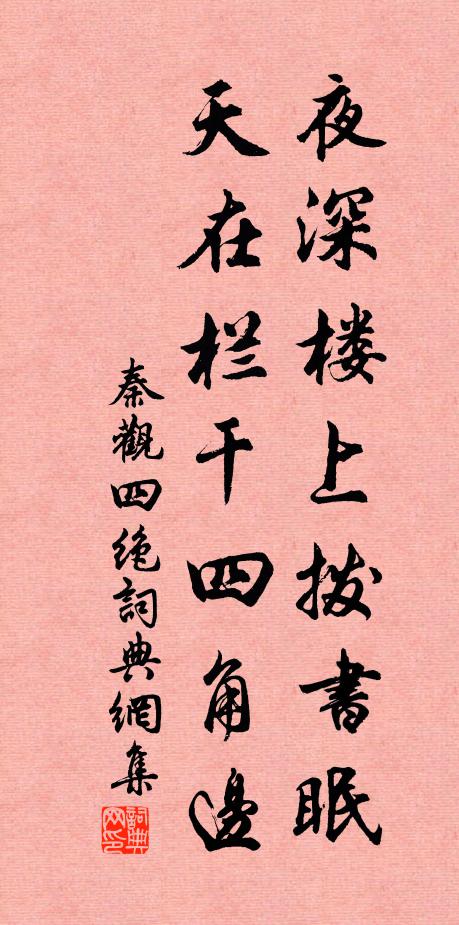 夜深楼上拨书眠
天在栏干四角邊
秦觀四绝詞典網集
詞典网印